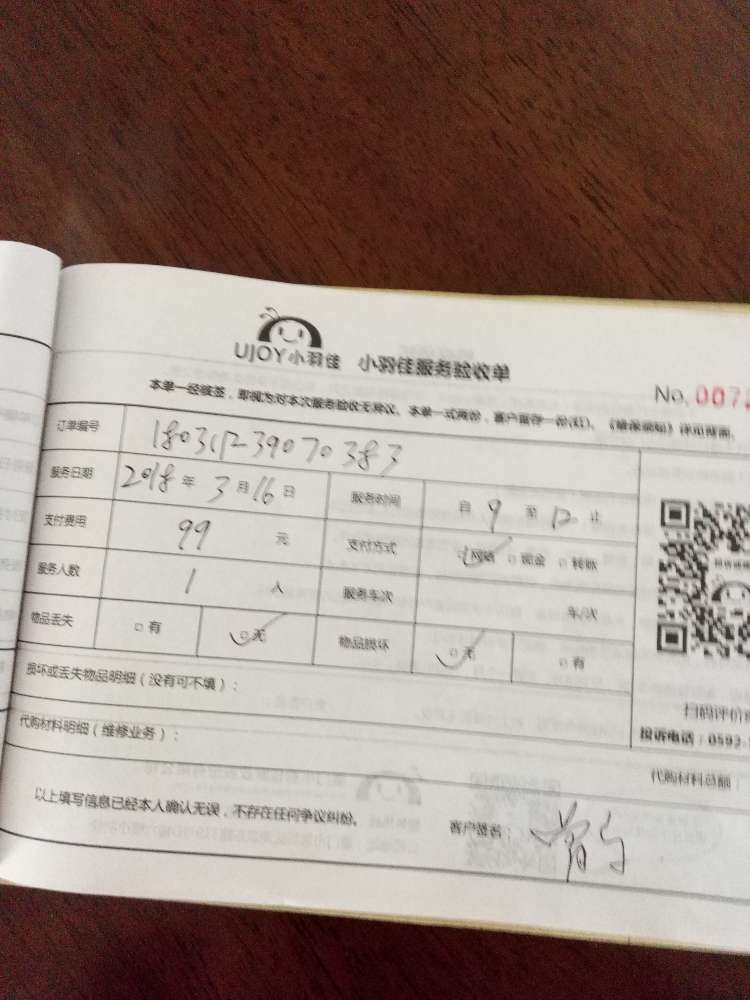 UJOY小羽佳 小羽佳服务验收单
No. 0072
本单一经核签，即视为对本次服务验收无异议。本单一式两份，客户留存一份(红)。
订单编号
服务日期 2018 年 3 月 16 日 服务时间 自 9 至 12 止
支付费用 99 元 支付方式 网络 □ 现金 □ 转账
服务人数 1 人 服务车次 年/次
物品丢失 □ 有 □ 无 物品损坏 □ 无 □ 有
损坏或丢失物品明细（没有可不填）：
扫码评价
投诉电话：0592-
代购材料明细（维修业务）：
代购材料总额
以上填写信息已经本人确认无误，不存在任何争议纠纷。
客户签名：